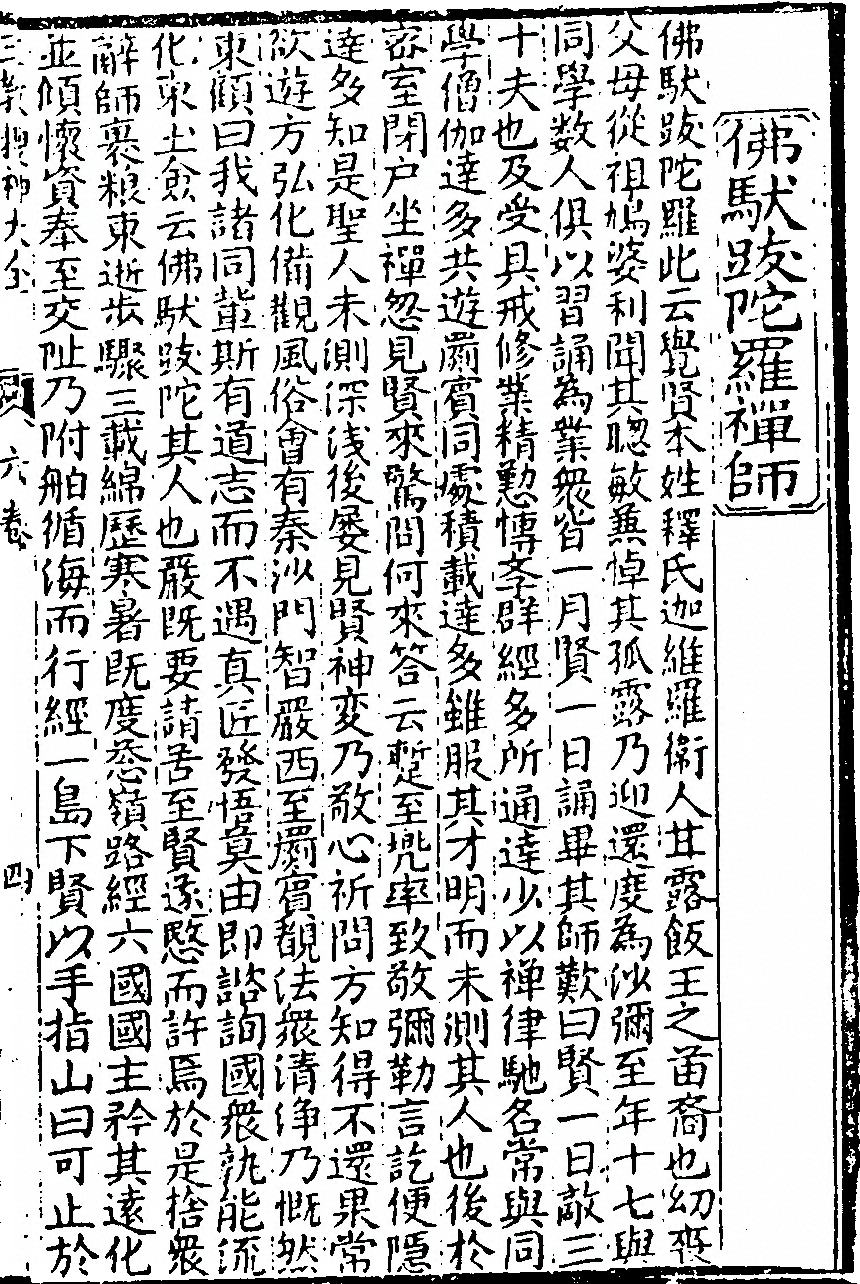 佛馱跋陀羅禪師
佛馱跋陀羅此云覺賢本姓釋氏迦維羅衛人甘露飯王之苗裔也幼喪
父母從祖鳩婆利聞其聰敏兼悼其孤露乃迎還度為沙彌至年十七與
同學数人俱以習誦為業衆皆一月賢一日誦畢其師歎曰賢一日敵三
十夫也及受具戒修業精懃愽斈群經多所通達少以禅律馳名常與同
學僧伽達多共遊罽賓同處積載達多雖服其才明而未測其人也後於
宻室閉户坐禪忽見賢來驚問何來答云蹔至兠率致敬彌勒言訖便隱
達多知是聖人未測深浅後屡見賢神変乃敬心祈問方知得不還果常
欲遊方弘化備觀風俗會有秦沙門智嚴西至罽賓覩法衆清浄乃慨然
東顧曰我諸同軰斯有道志而不遇真匠發悟莫由即諮詢國衆孰能流
化東土僉云佛馱跋陀其人也嚴既要請苦至賢遂愍而許焉於是捨衆
辭師裹粮東逝歩驟三載綿歷寒暑既度葱嶺路經六國國主矜其遠化
並傾懷資奉至交阯乃附舶循海而行經一島下賢以手指山曰可止於
三教搜神大全
六卷
四